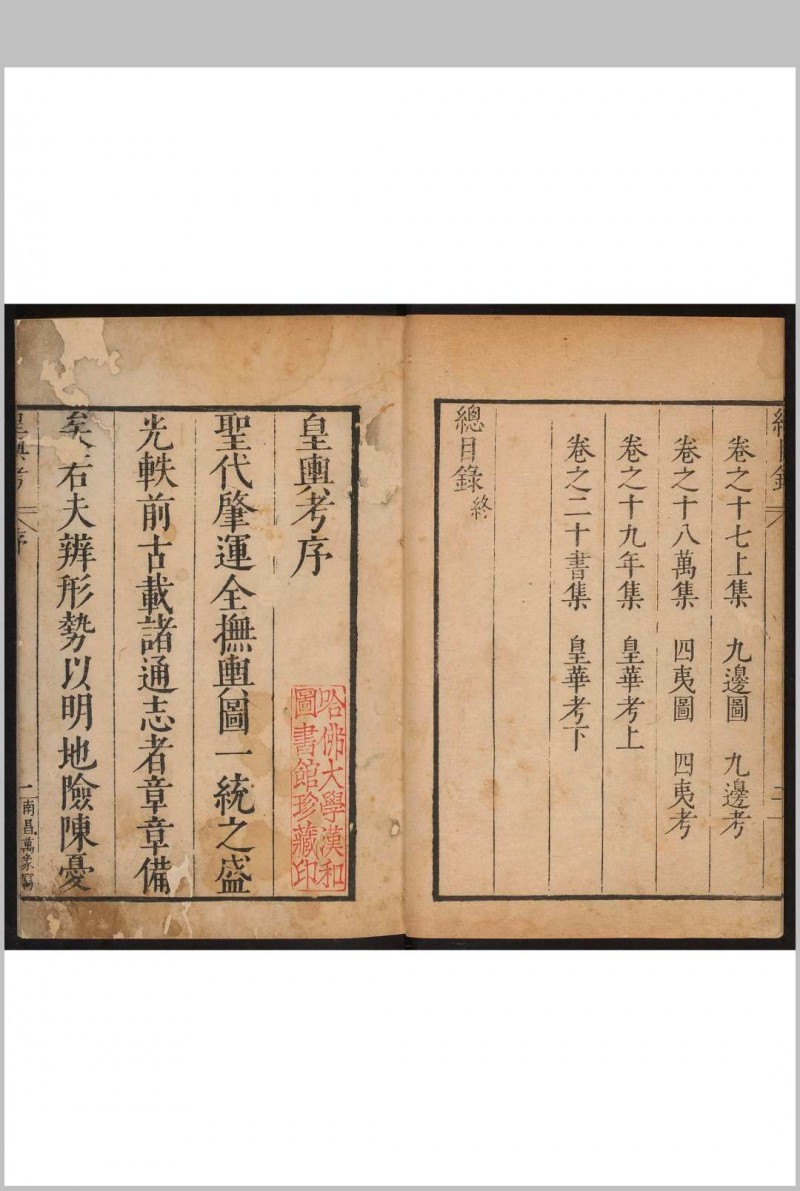 總目錄
卷之十七上集 九邊圖 九邊考
卷之十八萬集 四夷圖 四夷考
卷之十九年集 皇華考上
卷之二十書集 皇華考下
總目錄終
皇輿考序
哈佛大學漢和
圖書館珍藏印
聖代肇運全撫輿圖一統之盛
光軼前古載諸通志者章章備
矣 右夫辨形勢以明地險陳憂
皇輿考 序 一 南昌萬 寫